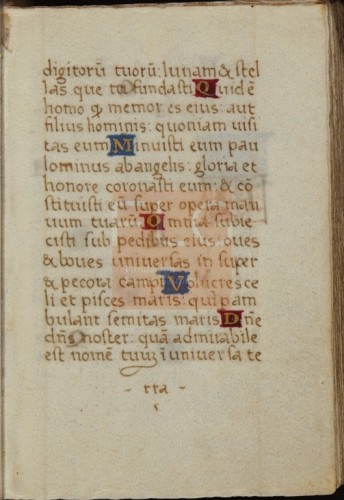 digitorū tuorū: lunam & stel
las que tu fundasti Quid ē
homo ꝙ memor es eius: aut
filius hominis: quoniam visi
tas eum Minuisti eum pau
lominus ab angelis: gloria et
honore coronasti eum: & cō
stituisti eū super opera man
uum tuarū Omnia subie
cisti sub pedibus eius oues
& boues universas in super
& pecora campi Volucres ce
li et pisces maris: qui pam
bulant semitas maris Dñe
dñs noster: quā admirabile
est nomē tuuȝ ī universa te
- rra -